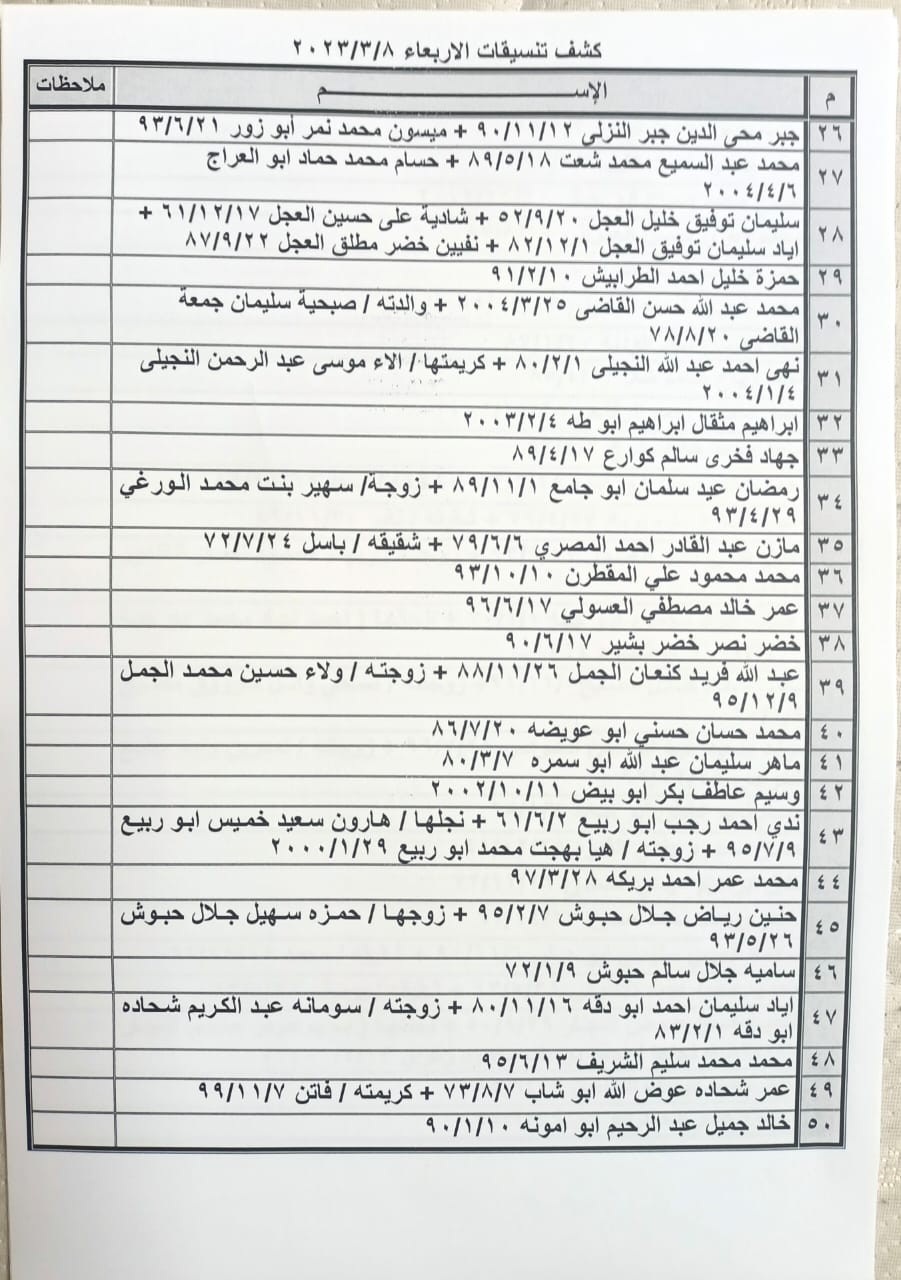 كشف تنسيقات الاربعاء ٢٠٢٣/٣/٨
م الإســـــــــــــــــــم ملاحظات
٢٦ جبر محي الدين جبر النزلى ٩٠/١١/١٢ + ميسون محمد نمر أبو زور ٩٣/٦/٢١
٢٧ محمد عبد السميع محمد شعت ٨٩/٥/١٨ + حسام محمد حماد ابو العراج
٢٠٠٤/٤/٦
٢٨ سليمان توفيق خليل العجل ٥٢/٩/٢٠ + شادية على حسين العجل ٦١/١٢/١٧ +
اياد سليمان توفيق العجل ٨٢/١٢/١ + نفيين خضر مطلق العجل ٨٧/٩/٢٢
٢٩ حمزة خليل احمد الطرابيش ٩١/٢/١٠
٣٠ محمد عبد الله حسن القاضى ٢٠٠٤/٣/٢٥ + والدته / صبحية سليمان جمعة
القاضى ٧٨/٨/٢٠
٣١ نهى احمد عبد الله النجيلى ٨٠/٢/١ + كريمتها / الاء موسى عبد الرحمن النجيلى
٢٠٠٤/١/٤
٣٢ ابراهيم مثقال ابراهيم ابو طه ٢٠٠٣/٢/٤
٣٣ جهاد فخرى سالم كوارع ٨٩/٤/١٧
٣٤ رمضان عيد سلمان ابو جامع ٨٩/١١/١ + زوجة/ سهير بنت محمد الورغي
٩٣/٤/٢٩
٣٥ مازن عبد القادر احمد المصري ٧٩/٦/٦ + شقيقه / باسل ٧٢/٧/٢٤
٣٦ محمد محمود علي المقطرن ٩٣/١٠/١٠
٣٧ عمر خالد مصطفي العسولي ٩٦/٦/١٧
٣٨ خضر نصر خضر بشير ٩٠/٦/١٧
٣٩ عبد الله فريد كنعان الجمل ٨٨/١١/٢٦ + زوجته / ولاء حسين محمد الجمل
٩٥/١٢/٩
٤٠ محمد حسان حسني ابو عويضه ٨٦/٧/٢٠
٤١ ماهر سليمان عبد الله ابو سمره ٨٠/٣/٧
٤٢ وسيم عاطف بكر ابو بيض ٢٠٠٢/١٠/١١
٤٣ ندي احمد رجب ابو ربيع ٦١/٦/٢ + نجلها / هارون سعيد خميس ابو ربيع
٩٥/٧/٩ + زوجته / هيا بهجت محمد ابو ربيع ٢٠٠٠/١/٢٩
٤٤ محمد عمر احمد بريكه ٩٧/٣/٢٨
٤٥ حنين رياض جلال حبوش ٩٥/٢/٧ + زوجها / حمزه سهيل جلال حبوش
٩٣/٥/٢٦
٤٦ ساميه جلال سالم حبوش ٧٢/١/٩
٤٧ اياد سليمان احمد ابو دقه ٨٠/١١/١٦ + زوجته / سومانه عبد الكريم شحاده
ابو دقه ٨٣/٢/١
٤٨ محمد محمد سليم الشريف ٩٥/٦/١٣
٤٩ عمر شحاده عوض الله ابو شاب ٧٣/٨/٧ + كريمته / فاتن ٩٩/١١/٧
٥٠ خالد جميل عبد الرحيم ابو امونه ٩٠/١/١٠